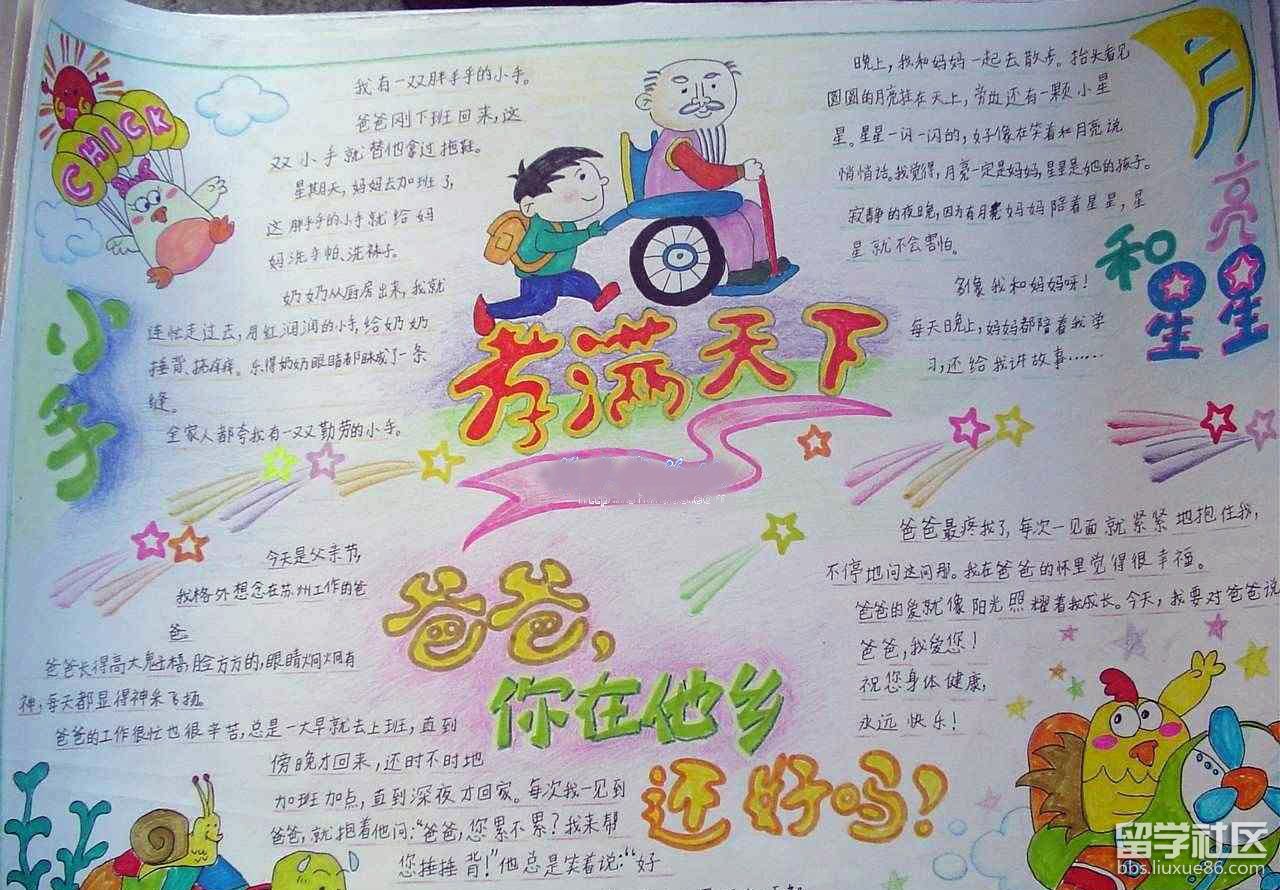 CHICK
小手
我有一双胖乎乎的小手。
爸爸刚下班回来，这
双小手就替他拿过拖鞋。
星期天，妈妈去加班了，
这胖乎乎的小手就给妈
妈洗手帕、洗袜子。
奶奶从厨房出来，我就
连忙走过去，用红润润的小手，给奶奶
捶背、挠痒痒。乐得奶奶眼睛都眯成了一条
缝。
全家人都夸我有一双勤劳的小手。
孝满天下
月亮和星星
晚上，我和妈妈一起去散步。抬头看见
圆圆的月亮挂在天上，旁边还有一颗小星
星。星星一闪一闪的，好像在笑着和月亮说
悄悄话。我觉得，月亮一定是妈妈，星星是她的孩子。
寂静的夜晚，因为有月亮妈妈陪着星星，星
星就不会害怕。
多像我和妈妈呀！
每天晚上，妈妈都陪着我学
习，还给我讲故事……
爸爸，
你在他乡
还好吗！
今天是父亲节，
我格外想念在苏州工作的爸
爸。
爸爸长得高大魁梧，脸方方的，眼睛炯炯有
神，每天都显得神采飞扬。
爸爸的工作很忙也很辛苦，总是一大早就去上班，直到
傍晚才回来，还时不时地
加班加点，直到深夜才回家。每次我一见到
爸爸，就抱着他问：“爸爸，您累不累？我来帮
您捶捶背！”他总是笑着说：“好
爸爸最疼我了，每次一见面就紧紧地抱住我，
不停地问这问那。我在爸爸的怀里觉得很幸福。
爸爸的爱就像阳光照耀着我成长。今天，我要对爸爸说
爸爸，我爱您！
祝您身体健康，
永远快乐！
留学社区
bbs.liuxue86.com